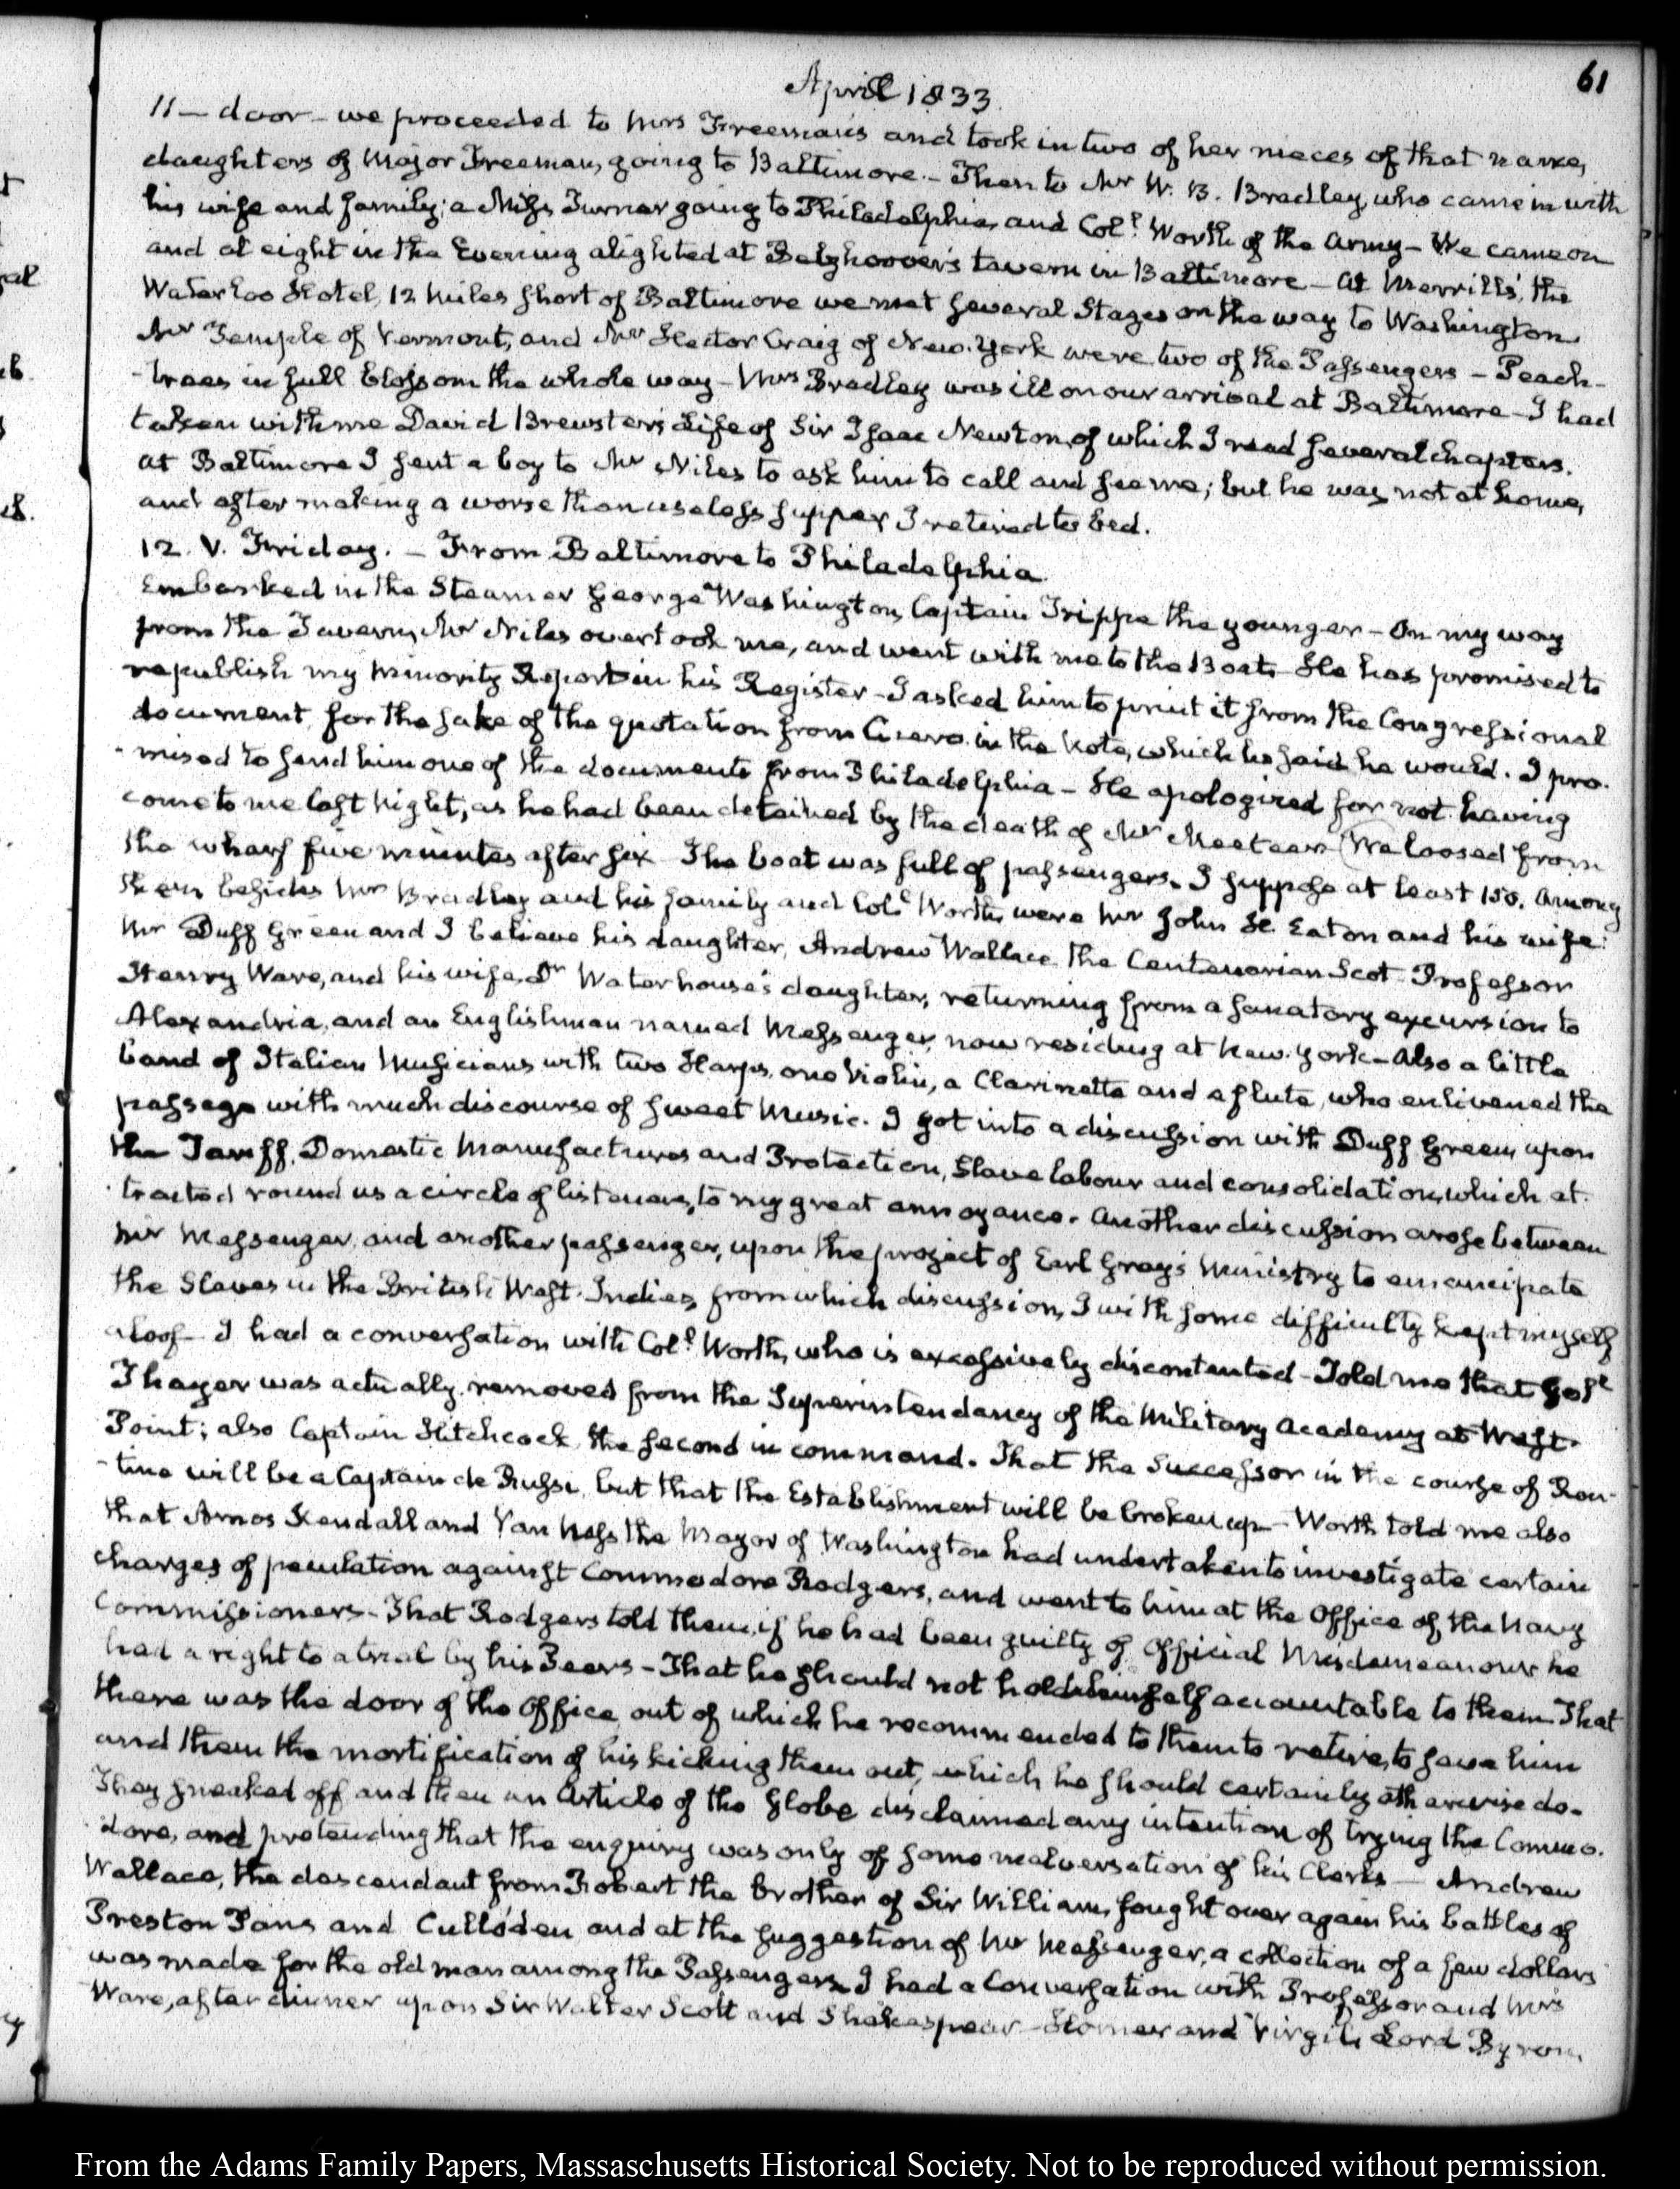 April 1833.
61
11 — door — we proceeded to Mrs Freeman's and took in two of her nieces of that name,
daughters of Major Freeman, going to Baltimore. — Then to Mr W. B. Bradley, who came in with
his wife and family; a Miss Turner going to Philadelphia, and Coll Worth of the Army — We came on
and at eight in the Evening alighted at Beltzhoover's tavern in Baltimore — At Merrills', the
Waterloo Hotel, 12 Miles short of Baltimore we met several Stages on the way to Washington.
Mr Temple of Vermont, and Mr Hector Craig of New-York were two of the Passengers — Peach-
-trees in full blossom the whole way — Mrs Bradley was ill on our arrival at Baltimore — I had
taken with me David Brewster's Life of Sir Isaac Newton, of which I read several chapters.
At Baltimore I sent a boy to Mr Niles to ask him to call and see me; but he was not at home,
and after making a worse than useless supper I retired to bed.
12. V. Friday. — From Baltimore to Philadelphia.
Embarked in the Steamer George Washington, Captain Trippe the younger — On my way
from the Tavern, Mr Niles overtook me, and went with me to the Boat — He has promised to
republish my Minority Report in his Register — I asked him to print it from the Congressional
document, for the sake of the quotation from Cicero in the Note, which he said he would. I pro-
-mised to send him one of the documents from Philadelphia — He apologized for not having
come to me last Night, as he had been detained by the death of Mr Meeteer (We loosed from
the wharf five minutes after six The boat was full of passengers. I suppose at least 150. Among
them besides Mr Bradley and his family and Coll Worth, were Mr John H. Eaton and his wife:
Mr Duff Green and I believe his daughter, Andrew Wallace the Centenarian Scot Professor
Henry Ware, and his wife, Dr Waterhouse's daughter, returning from a sanatory excursion to
Alexandria, and an Englishman named Messenger, now residing at New-York — Also a little
band of Italian Musicians with two Harps, one Violin, a Clarinette and a flute, who enlivened the
passage with much discourse of sweet Music. I got into a discussion with Duff Green, upon
the Tariff, Domestic Manufactures and Protection, Slave labour and consolidation, which at-
-tracted round us a circle of listeners, to my great annoyance. Another discussion arose between
Mr Messenger, and another passenger, upon the project of Earl Grey's Ministry to emancipate
the Slaves in the British West-Indies, from which discussion, I with some difficulty kept myself
aloof — I had a conversation with Coll Worth, who is excessively discontented — Told me that Coll
Thayer was actually removed from the Superintendancy of the Military Academy at West-
Point; also Captain Hitchcock, the second in command. That the Successor in the course of Rou-
-tine will be a Captain de Russi, but that the Establishment will be broken up — Worth told me also
that Amos Kendall and Van Ness the Mayor of Washington had undertaken to investigate certain
charges of peculation against Commodore Rodgers, and went to him at the Office of the Navy
Commissioners — That Rodgers told them, if he had been guilty of Official Misdemeanour he
had a right to a trial by his Peers — That he should not hold himself accountable to them That
there was the door of the Office, out of which he recommended to them to retire, to save him
and them the mortification of his kicking them out, which he should certainly otherwise do.
They sneaked off and then an Article of the Globe disclaimed any intention of trying the Commo-
-dore, and pretending that the enquiry was only of some malversation of his Clerks — Andrew
Wallace, the descendant from Robert the brother of Sir William, fought over again his battles of
Preston Pans and Culloden and at the suggestion of Mr Messenger, a collection of a few dollars
was made for the old man among the Passengers. I had a Conversation with Professor and Mrs
Ware, after dinner upon Sir Walter Scott and Shakespear — Homer and Virgil, Lord Byron,
From the Adams Family Papers, Massachusetts Historical Society. Not to be reproduced without permission.